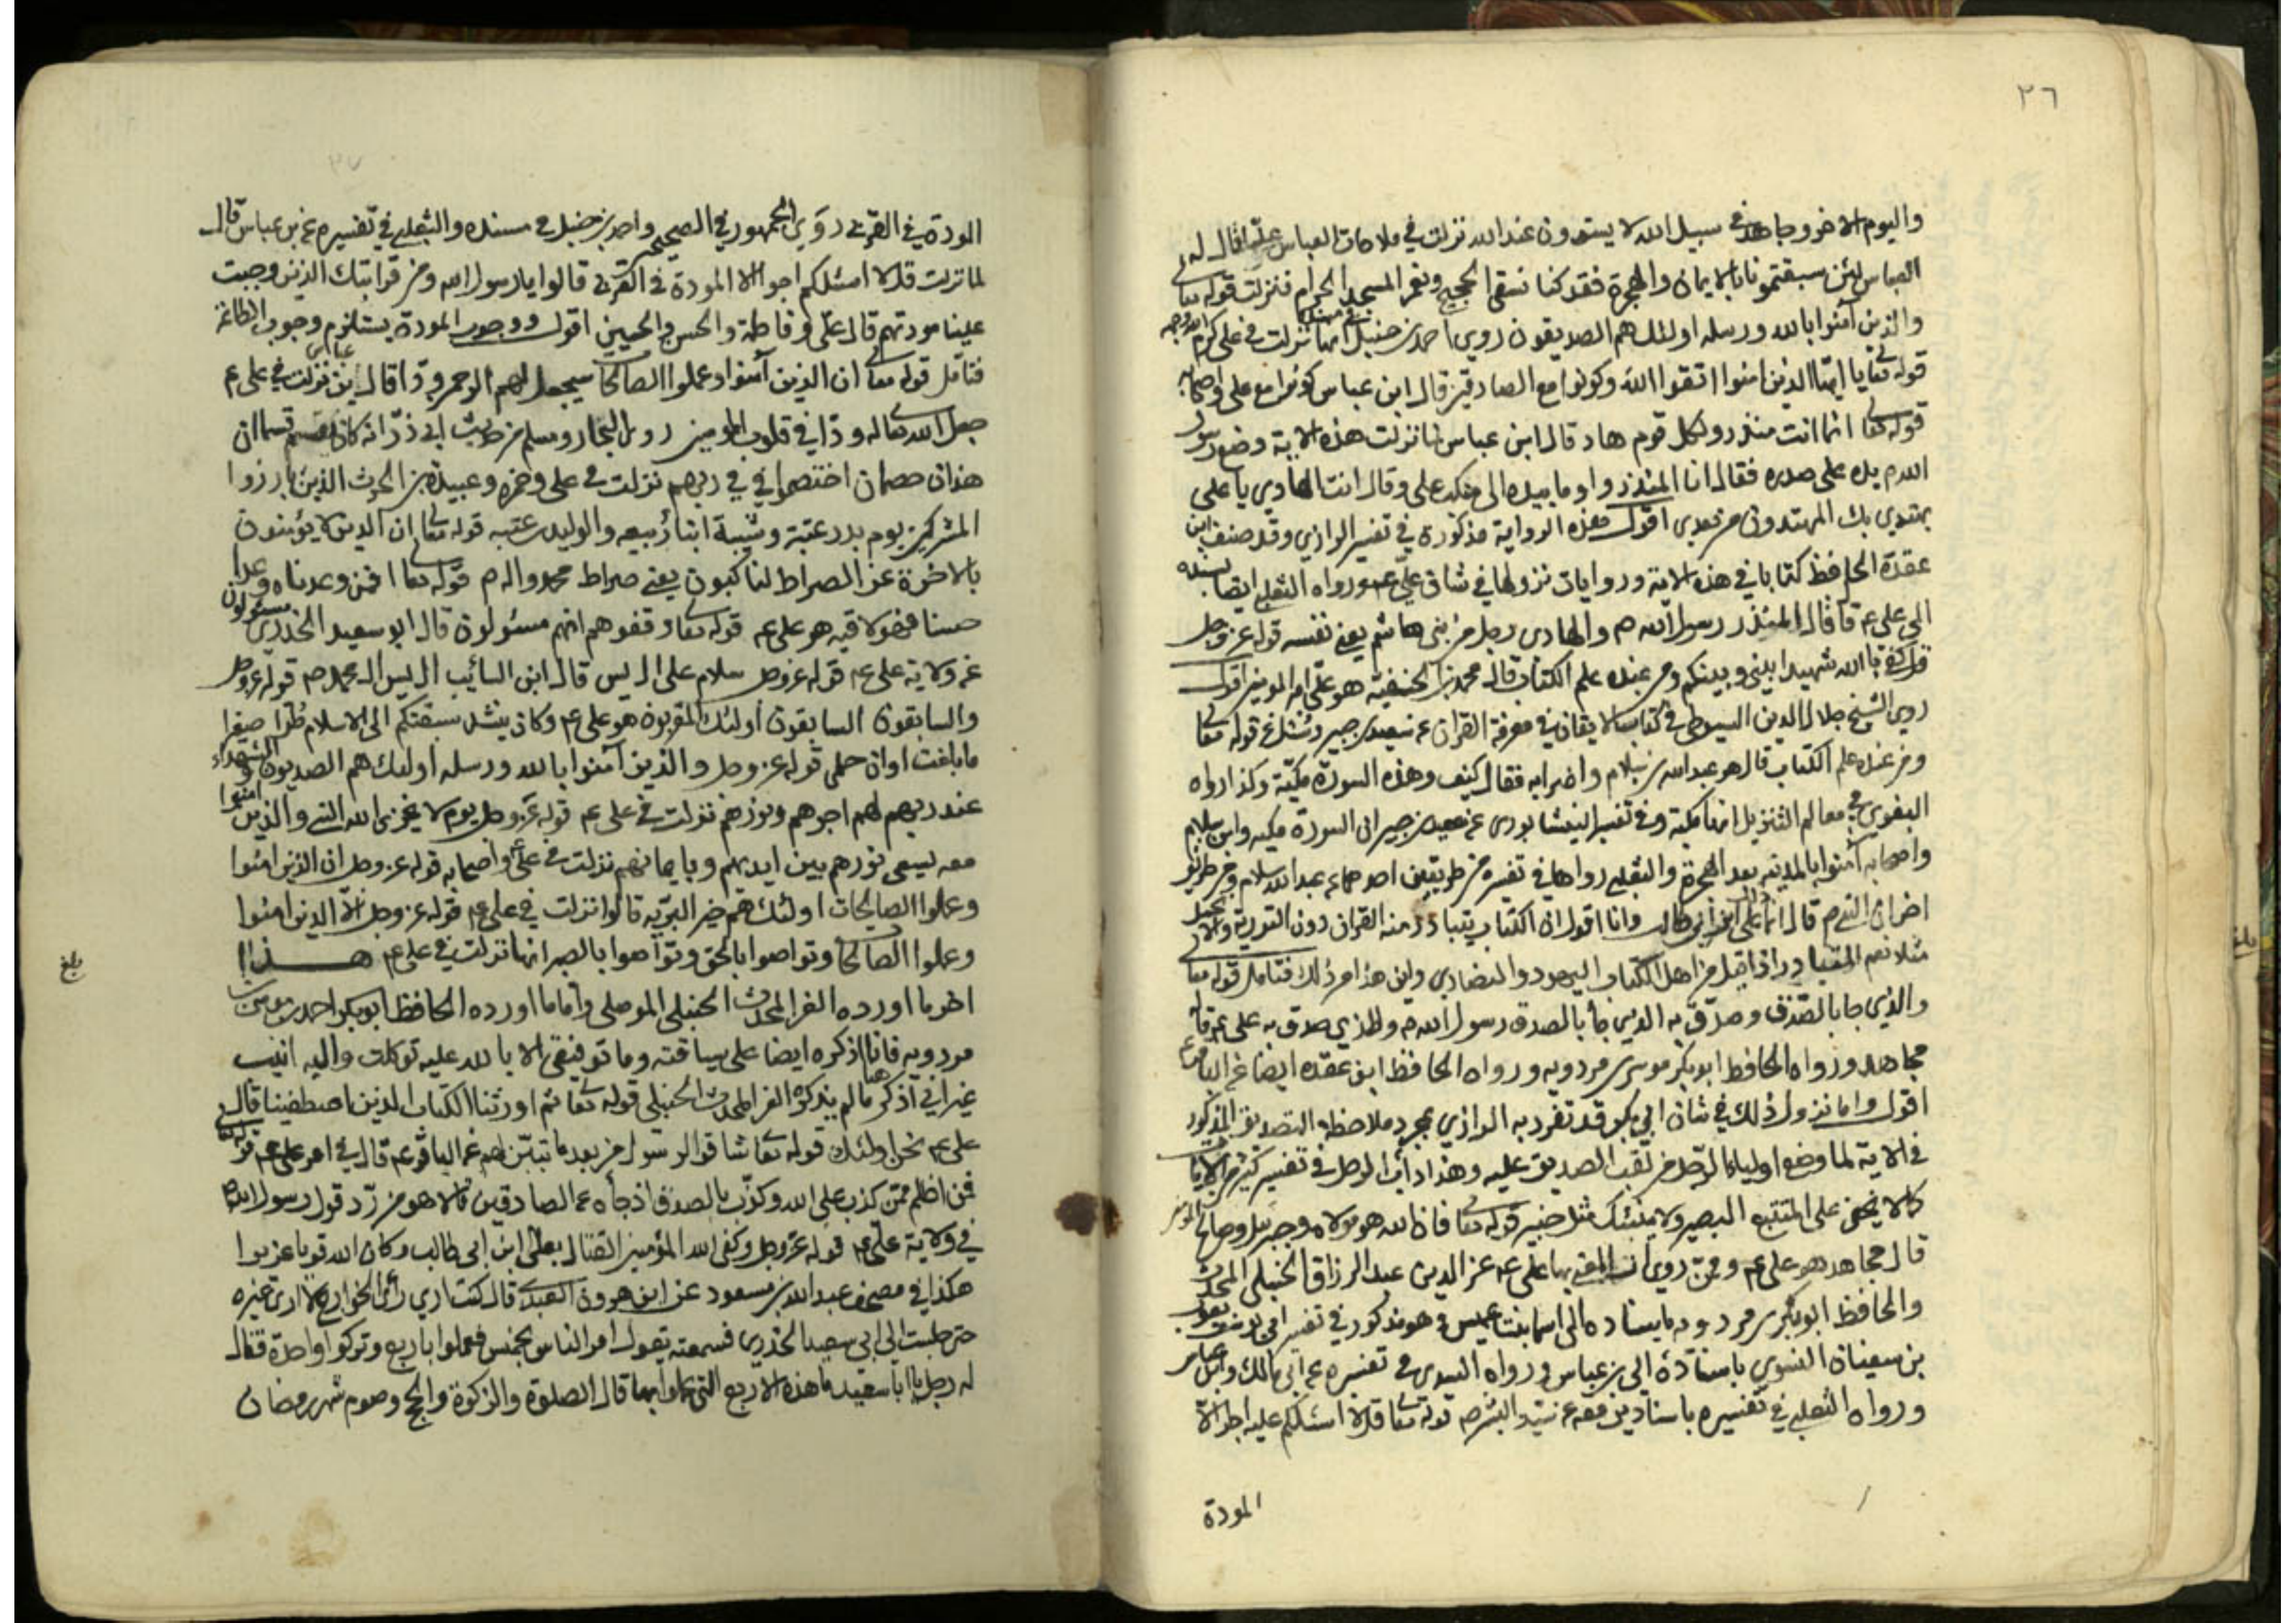 ٣٦
واليوم الاخر وجاهد في سبيل الله لا يستوون عند الله نزلت في ملاحات العباس عليا قال له
العباس لئن سبقتمونا بالايمان والهجرة فقد كنا نسقى الحجيج ونعمر المسجد الحرام فنزلت قوله تعالى
والذين آمنوا بالله ورسله اولئك هم الصديقون روى احمد بن حنبل في مسنده انها نزلت في على كرم الله وجهه
قوله تعالى يا ايها الذين امنوا اتقوا الله وكونوا مع الصادقين قال ابن عباس كونوا مع على واصحابه
قوله تعالى انما انت منذر ولكل قوم هاد قال ابن عباس لما نزلت هذه الاية وضع رسول
الله م يده على صدره فقال انا المنذر واوما بيده الى منكب على وقال انت الهادي يا على
يهتدي بك المهتدون من بعدى اقول هذه الرواية مذكورة في تفسير الرازي وقد صنف ابن
عقدة الحافظ كتابا في هذه الاية وروايات نزولها في شان على عم ورواه الثعلبي ايضا بسنده
الى على عم قال المنذر رسول الله ص والهادى رجل من بنى هاشم يعني نفسه قوله عز وجل
قل كفى بالله شهيدا بيني وبينكم ومن عنده علم الكتاب قال محمد بن الحنفية هو على امير المومنين اقول
روى الشيخ جلال الدين السيوطي في كتاب الاتقان في معرفة القران عن سعيد بن جبير وسئل عن قوله تعالى
ومن عنده علم الكتاب قال هو عبد الله بن سلام واضرابه فقال كيف وهذه السورة مكيّة وكذا رواه
البغوى في معالم التنزيل انها مكية وفي تفسير النيشابورى عن سعيد بن جبير ان السورة مكيه وابن سلام
واصحابه آمنوا بالمدينه بعد الهجرة والثعلبي رواها في تفسيره من طريقين احدهما عن عبد الله بن سلام ومن طريق
اخر ان النبي م قال انما ذلك على ابن ابي طالب وانا اقول ان الكتاب يتبادر منه القران دون التورية والانجيل
مثلا نعم المتبادر اذا قيل من اهل الكتاب اليهود والنصارى واين هذا من ذلك فتامل قوله تعالى
والذي جا بالصدق وصدّق به الذي جا بالصدق رسول الله ص والذي صدق به على عم قاله
مجاهد ورواه الحافظ ابو بكر موسى مردويه ورواه الحافظ ابن عقده ايضا عن الباقر عم
اقول واما نزول ذلك في شان ابي بكر قد تفرد به الرازي بمجرد ملاحظة التصديق المذكور
في الاية لما وضع اولياء الرجل من لقب الصديق عليه وهذا دأب الرجل في تفسير كثير من الايات
كما لا يخفى على المتتبع البصير ولا ينبئك مثل خبير قوله تعالى فان الله هو مولاه وجبريل وصالح المومنين
قال مجاهد هو على عم وممن روى ان المعني بها على عم عز الدين عبد الرزاق الحنبلى المحدث
والحافظ ابو بكر بن مردويه باسناده الى اسما بنت عميس وهو مذكور في تفسير ابي يوسف يعقوب
بن سفيان النسوي باسناده الى بن عباس ورواه السدى في تفسيره عن ابي مالك وابن عباس
ورواه الثعلبي في تفسيره باسنادين رفعه عن سيد البشر ص قوله تعالى قل لا اسئلكم عليه اجرا الا
المودة
٣٧
المودة في القربى روى الجمهور في الصحيحين واحمد بن حنبل في مسنده والثعلبي في تفسيره عن بن عباس قال
لما نزلت قل لا اسئلكم اجرا الا المودة في القربى قالوا يا رسول الله ومن قرابتك الذين وجبت
علينا مودتهم قال على وفاطمة والحسن والحسين اقول ووجوب المودة يستلزم وجوب الطاعة
فتامل قوله تعالى ان الذين آمنوا وعملوا الصالحات سيجعل لهم الرحمن ودا قال ابن عباس نزلت في على عم
جعل الله تعالى له ودا في قلوب المومنين روى البخارى ومسلم من حديث ابي ذر انه كان يقسم قسما ان
هذان خصمان اختصموا في ربهم نزلت في على وحمزه وعبيدة بن الحرث الذين بارزوا
المشركين يوم بدر عتبة وشيبة ابنا ربيعه والوليد بن عتبه قوله تعالى ان الذين لا يؤمنون
بالاخرة عن الصراط لناكبون يعني صراط محمد واله م قوله تعالى افمن وعدناه وعدا
حسنا فهو لاقيه هو على عم قوله تعالى وقفوهم انهم مسئولون قال ابو سعيد الخدري مسئولون
عن ولاية على عم قوله عز وجل سلام على ال يس قال ابن السائب ال يس ال محمد ص قوله عز وجل
والسابقون السابقون أولئك المقربون هو على عم وكان ينشد سبقتكم الى الاسلام طرا صغيرا
ما بلغت اوان حلمى قوله عز وجل والذين آمنوا بالله ورسله اولئك هم الصديقون والشهداء
عند ربهم لهم اجرهم ونورهم نزلت في على عم قوله عز وجل يوم لا يخزى الله النبي والذين امنوا
معه يسعى نورهم بين ايديهم وبايمانهم نزلت في على واصحابه قوله عز وجل ان الذين امنوا
وعملوا الصالحات اولئك هم خير البريه قالوا نزلت في على عم قوله عز وجل الا الذين امنوا
وعملوا الصالحات وتواصوا بالحق وتواصوا بالصبر انها نزلت في على عم هذا
اخر ما اورده العز المحدث الحنبلى الموصلى واما ما اورده الحافظ ابو بكر احمد بن موسى بن
مردويه فانا اذكره ايضا على سياقته وما توفيقى الا بالله عليه توكلت واليه انيب
غير اني اذكر ها هنا ما لم يذكره العز المحدث الحنبلى قوله تعالى ثم اورثنا الكتاب الذين اصطفينا قال
على عم نحن اولئك قوله تعالى شاقوا الرسول من بعد ما تبين لهم عن الباقر عم قال في امر على عم قوله تعالى
فمن اظلم ممن كذب على الله وكذب بالصدق اذ جاءه عن الصادقين قالا هو من رد قول رسول الله ص
في ولاية على عم قوله عز وجل وكفى الله المؤمنين القتال بعلى ابن ابي طالب وكان الله قويا عزيزا
هكذا في مصحف عبد الله بن مسعود عن ابن هرون العبدي قال كنت ارى رأى الخوارج لا ارى غيره
حتى جلست الى ابي سعيد الخدرى فسمعته يقول امر الناس بخمس فعملوا باربع وتركوا واحدة فقال
له رجل يا ابا سعيد ما هذه الاربع التي عملوا بها قال الصلوة والزكوة والحج وصوم شهر رمضان
بلغ